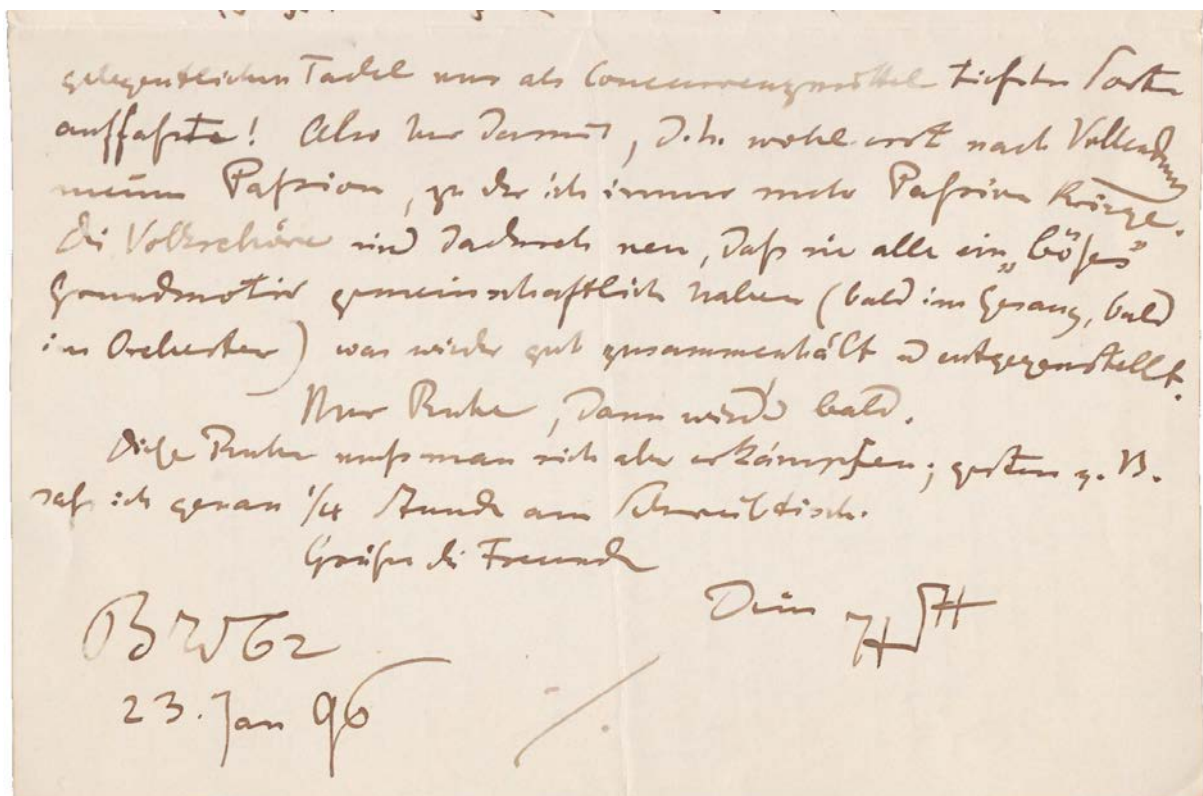 gelegentlichen Tadel nur als Concurrenzmittel tiefster Sorte
auffaßte! Also nur damit, d. h. wohl erst nach Vollendung
meiner Passion, zu der ich immer mehr Passion kriege.
Die Volkschöre sind dadurch neu, daß sie alle ein „böses“
Grundmotiv gemeinschaftlich haben (bald im Gesang, bald
im Orchester) was wieder gut zusammenhält u entgegenstellt.
Nur Ruhe, dann wird's bald.
Diese Ruhe muß man sich aber erkämpfen; gestern z. B.
saß ich genau 1/4 Stunde am Schreibtisch.
Grüße die Freunde
Dein
23. Jan 96